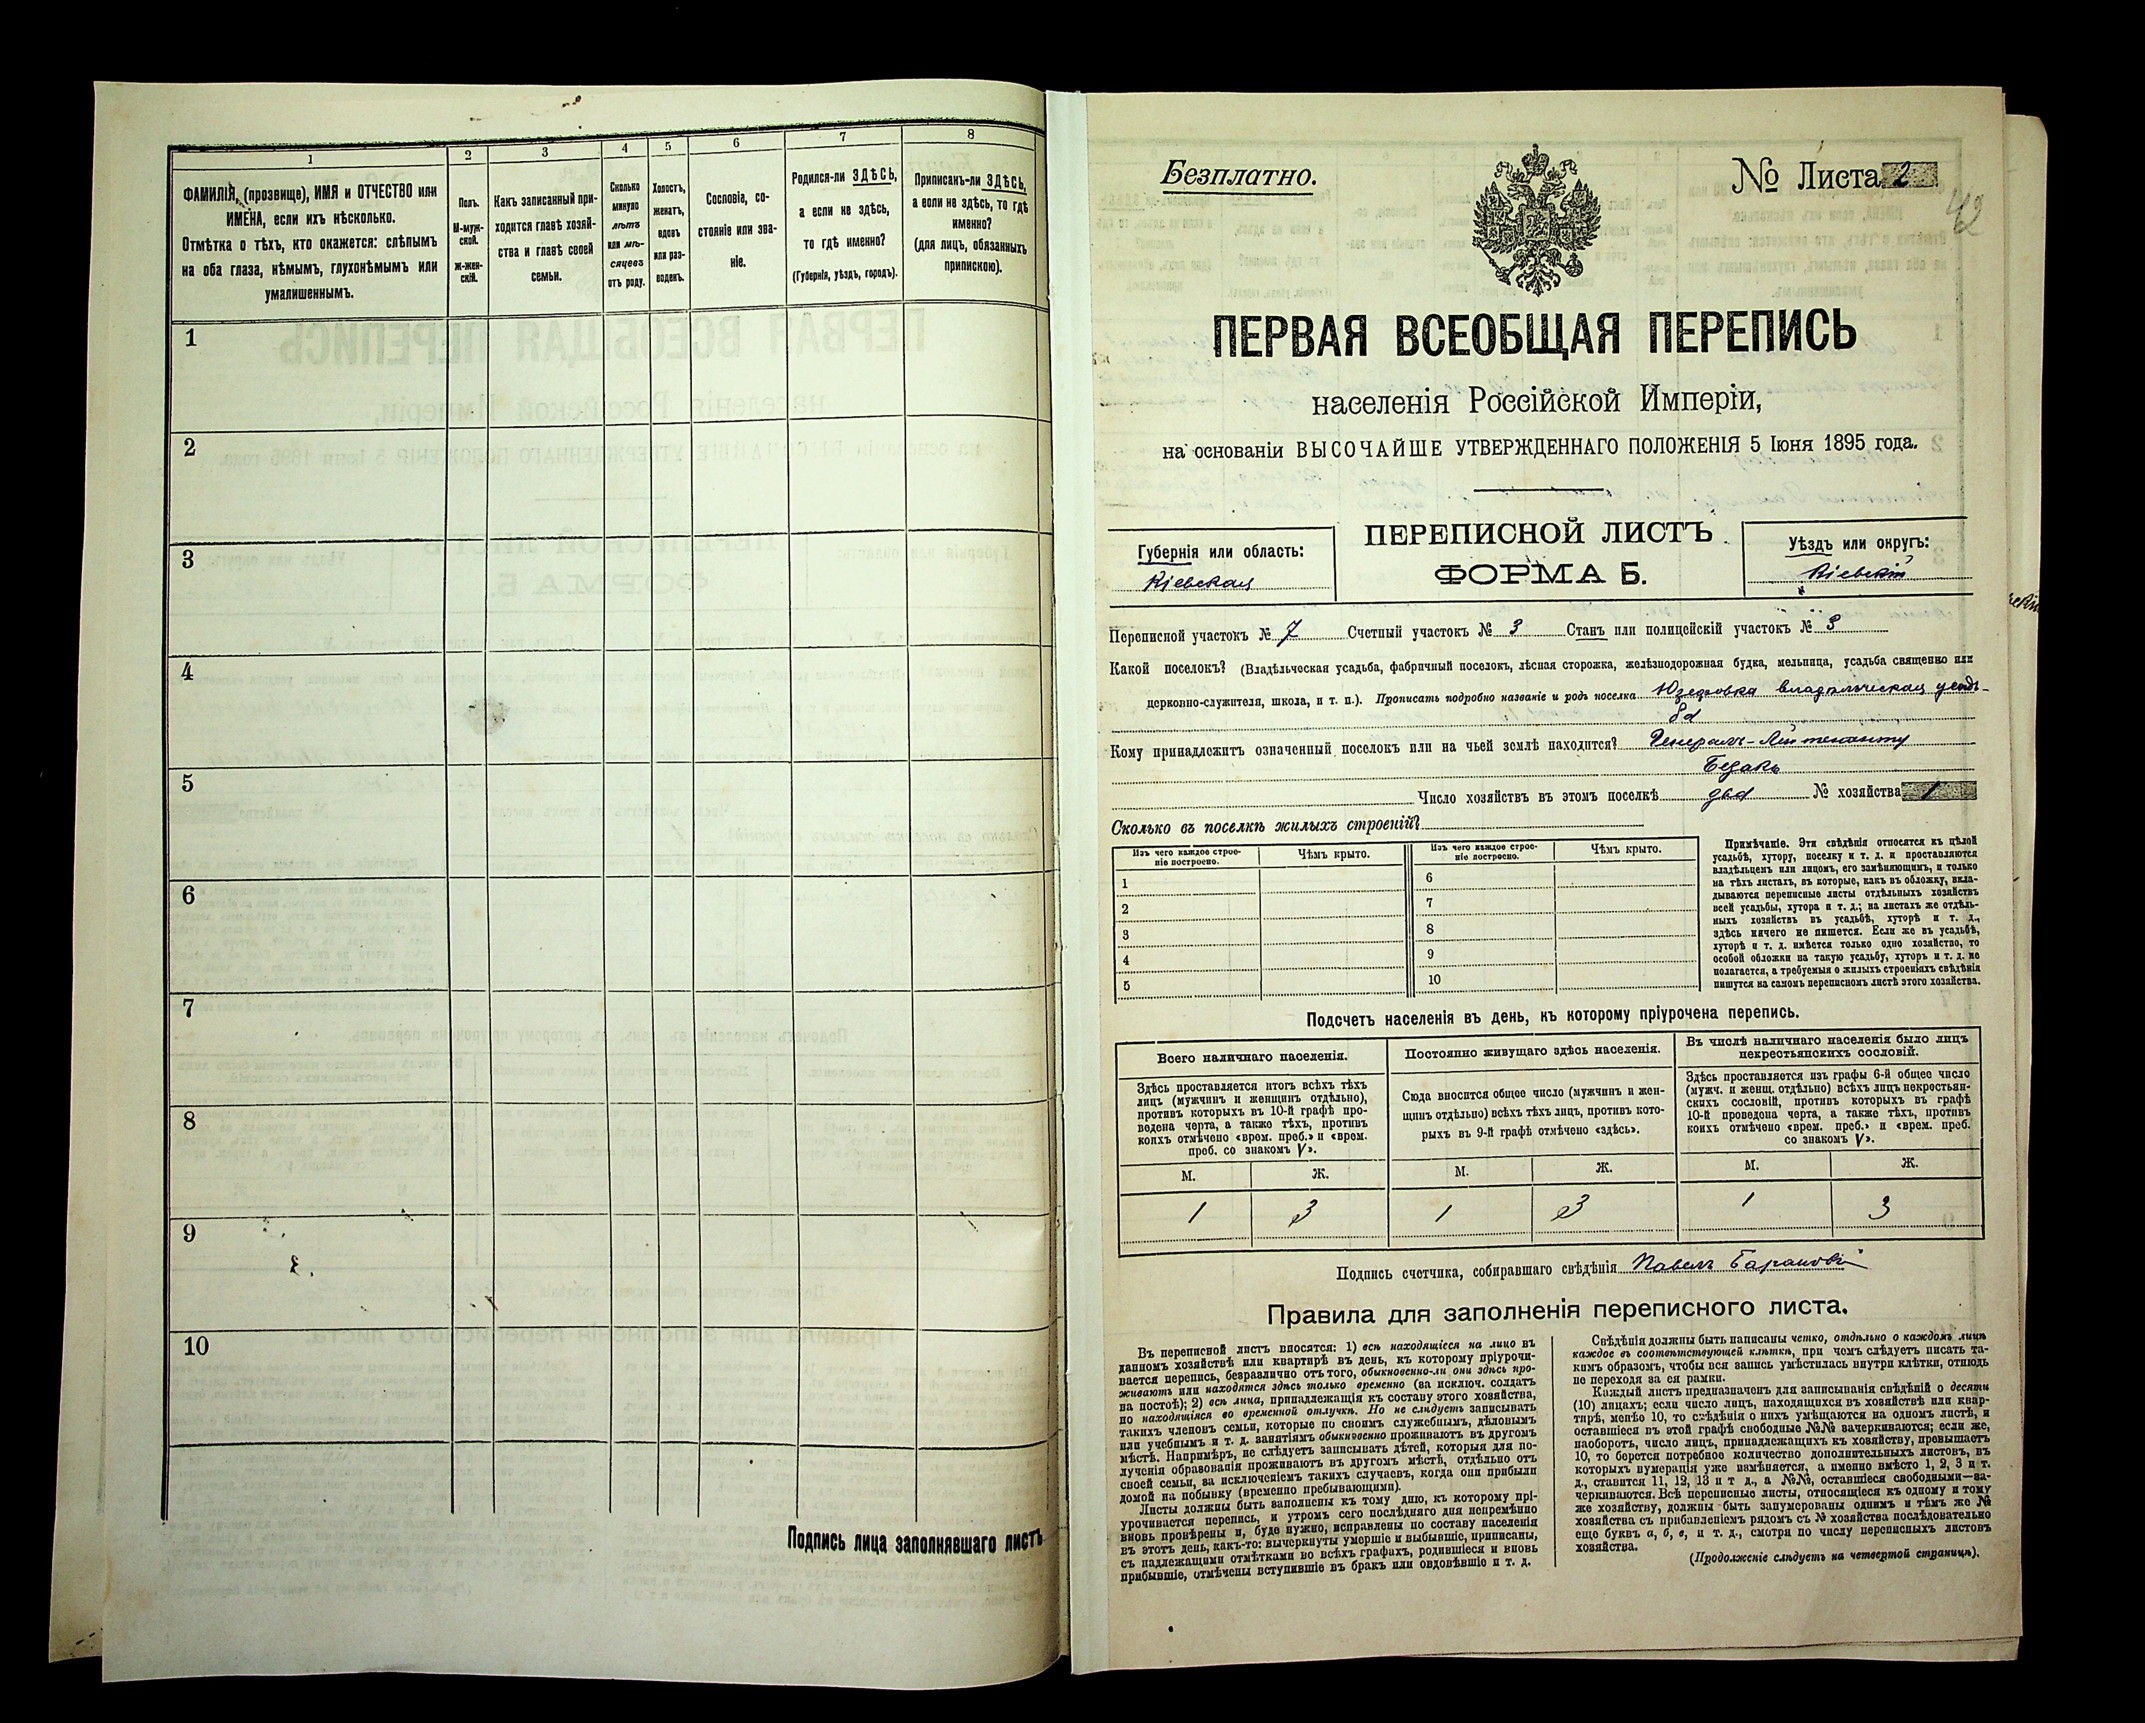 1
2
3
4
5
6
7
8
ФАМИЛІЯ, (прозвище), ИМЯ и ОТЧЕСТВО или
ИМЕНА, если ихъ нѣсколько.
Отмѣтка о тѣхъ, кто окажется: слѣпымъ
на оба глаза, нѣмымъ, глухонѣмымъ или
умалишеннымъ.
Полъ.
М-муж-
ской.
Ж-жен-
скій.
Какъ записанный при-
ходится главѣ хозяй-
ства и главѣ своей
семьи.
Сколько
минуло
лѣтъ
или мѣ-
сяцевъ
отъ роду.
Холостъ,
женатъ,
вдовъ
или раз-
веденъ.
Сословіе, со-
стояніе или зва-
ніе.
Родился-ли ЗДѢСЬ,
а если не здѣсь,
то гдѣ именно?
(Губернія, уѣздъ, городъ).
Приписанъ-ли ЗДѢСЬ,
а если не здѣсь, то гдѣ
именно?
(для лицъ, обязанныхъ
припискою).
1
2
3
4
5
6
7
8
9
10
Подпись лица заполнявшаго листъ
Безплатно.
№ Листа 2
42
ПЕРВАЯ ВСЕОБЩАЯ ПЕРЕПИСЬ
населенія Россійской Имперіи,
на основаніи ВЫСОЧАЙШЕ УТВЕРЖДЕННАГО ПОЛОЖЕНІЯ 5 Іюня 1895 года.
Губернія или область:
Кіевская
ПЕРЕПИСНОЙ ЛИСТЪ
ФОРМА Б.
Уѣздъ или округъ:
Кіевскій
Переписной участокъ № 7 Счетный участокъ № 3 Станъ или полицейскій участокъ № 3
Какой поселокъ? (Владѣльческая усадьба, фабричный поселокъ, лѣсная сторожка, желѣзнодорожная будка, мельница, усадьба священно или
церковно-служителя, школа, и т. п.). Прописать подробно названіе и родъ поселка Юзефовка владѣльческая усадь-
ба
Кому принадлежитъ означенный поселокъ или на чьей землѣ находится? Генералъ-Лейтенанту
Безакъ
Число хозяйствъ въ этомъ поселкѣ два № хозяйства 1
Сколько въ поселкѣ жилыхъ строеній?
Изъ чего каждое строе-
ніе построено.
Чѣмъ крыто.
Изъ чего каждое строе-
ніе построено.
Чѣмъ крыто.
1
2
3
4
5
6
7
8
9
10
Примѣчаніе. Эти свѣдѣнія относятся къ цѣлой
усадьбѣ, хутору, поселку и т. д. и проставляются
владѣльцемъ или лицомъ, его замѣняющимъ, и только
на тѣхъ листахъ, въ которые, какъ въ обложку, вкла-
дываются переписные листы отдѣльныхъ хозяйствъ
всей усадьбы, хутора и т. д.; на листахъ же отдѣль-
ныхъ хозяйствъ въ усадьбѣ, хуторѣ и т. д.,
здѣсь ничего не пишется. Если же въ усадьбѣ,
хуторѣ и т. д. имѣется только одно хозяйство, то
особой обложки на такую усадьбу, хуторъ и т. д. не
полагается, а требуемыя о жилыхъ строеніяхъ свѣдѣнія
пишутся на самомъ переписномъ листѣ этого хозяйства.
Подсчетъ населенія въ день, къ которому пріурочена перепись.
Всего наличнаго населенія.
Постоянно живущаго здѣсь населенія.
Въ числѣ наличнаго населенія было лицъ
некрестьянскихъ сословій.
Здѣсь проставляется итогъ всѣхъ тѣхъ
лицъ (мужчинъ и женщинъ отдѣльно),
противъ которыхъ въ 10-й графѣ про-
ведена черта, а также тѣхъ, противъ
коихъ отмѣчено «врем. преб.» и «врем.
преб. со знакомъ V».
Сюда вносится общее число (мужчинъ и жен-
щинъ отдѣльно) всѣхъ тѣхъ лицъ, противъ кото-
рыхъ въ 9-й графѣ отмѣчено «здѣсь».
Здѣсь проставляется изъ графы 6-й общее число
(мужч. и женщ. отдѣльно) всѣхъ лицъ некрестьян-
скихъ сословій, противъ которыхъ въ графѣ
10-й проведена черта, а также тѣхъ, противъ
коихъ отмѣчено «врем. преб.» и «врем. преб.
со знакомъ V».
М. Ж. М. Ж. М. Ж.
1 3 1 3 1 3
Подпись счетчика, собиравшаго свѣдѣнія Павелъ
Правила для заполненія переписного листа.
Въ переписной листъ вносятся: 1) всѣ находящіеся на лицо въ
данномъ хозяйствѣ или квартирѣ въ день, къ которому пріурочи-
вается перепись, безразлично отъ того, обыкновенно-ли они здѣсь про-
живаютъ или находятся здѣсь только временно (за исключ. солдатъ
на постоѣ); 2) всѣ лица, принадлежащія къ составу этого хозяйства,
но находящіяся во временной отлучкѣ. Но не слѣдуетъ записывать
такихъ членовъ семьи, которые по своимъ служебнымъ, дѣловымъ
или учебнымъ и т. д. занятіямъ обыкновенно проживаютъ въ другомъ
мѣстѣ. Напримѣръ, не слѣдуетъ записывать дѣтей, которыя для по-
лученія образованія проживаютъ въ другомъ мѣстѣ, отдѣльно отъ
своей семьи, за исключеніемъ такихъ случаевъ, когда они прибыли
домой на побывку (временно пребывающими).
Листы должны быть заполнены къ тому дню, къ которому прі-
урочивается перепись, и утромъ сего послѣдняго дня непремѣнно
вновь провѣрены и, буде нужно, исправлены по составу населенія
въ этотъ день, какъ-то: вычеркнуты умершіе и выбывшіе, приписаны,
съ надлежащими отмѣтками во всѣхъ графахъ, родившіеся и вновь
прибывшіе, отмѣчены вступившіе въ бракъ или овдовѣвшіе и т. д.
Свѣдѣнія должны быть написаны четко, отдѣльно о каждомъ лицѣ
каждое въ соотвѣтствующей клѣткѣ, при чемъ слѣдуетъ писать та-
кимъ образомъ, чтобы вся запись умѣстилась внутри клѣтки, отнюдь
не переходя за ея рамки.
Каждый листъ предназначенъ для записыванія свѣдѣній о десяти
(10) лицахъ; если число лицъ, находящихся въ хозяйствѣ или квар-
тирѣ, менѣе 10, то свѣдѣнія о нихъ умѣщаются на одномъ листѣ, и
оставшіеся въ этой графѣ свободные №№ зачеркиваются; если же,
наоборотъ, число лицъ, принадлежащихъ къ хозяйству, превышаетъ
10, то берется потребное количество дополнительныхъ листовъ, въ
которыхъ нумерація уже измѣняется, а именно вмѣсто 1, 2, 3 и т.
д., ставится 11, 12, 13 и т д., а №№, оставшіеся свободными—за-
черкиваются. Всѣ переписные листы, относящіеся къ одному и тому
же хозяйству, должны быть занумерованы однимъ и тѣмъ же №
хозяйства съ прибавленіемъ рядомъ съ № хозяйства послѣдовательно
еще буквъ а, б, в, и т. д., смотря по числу переписныхъ листовъ
хозяйства.
(Продолженіе слѣдуетъ на четвертой страницѣ).